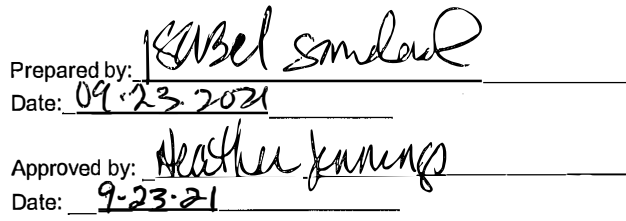 Prepared by: Isabel Sandoval
Date: 09.23.2021
Approved by: Heather Jennings
Date: 9-23-21